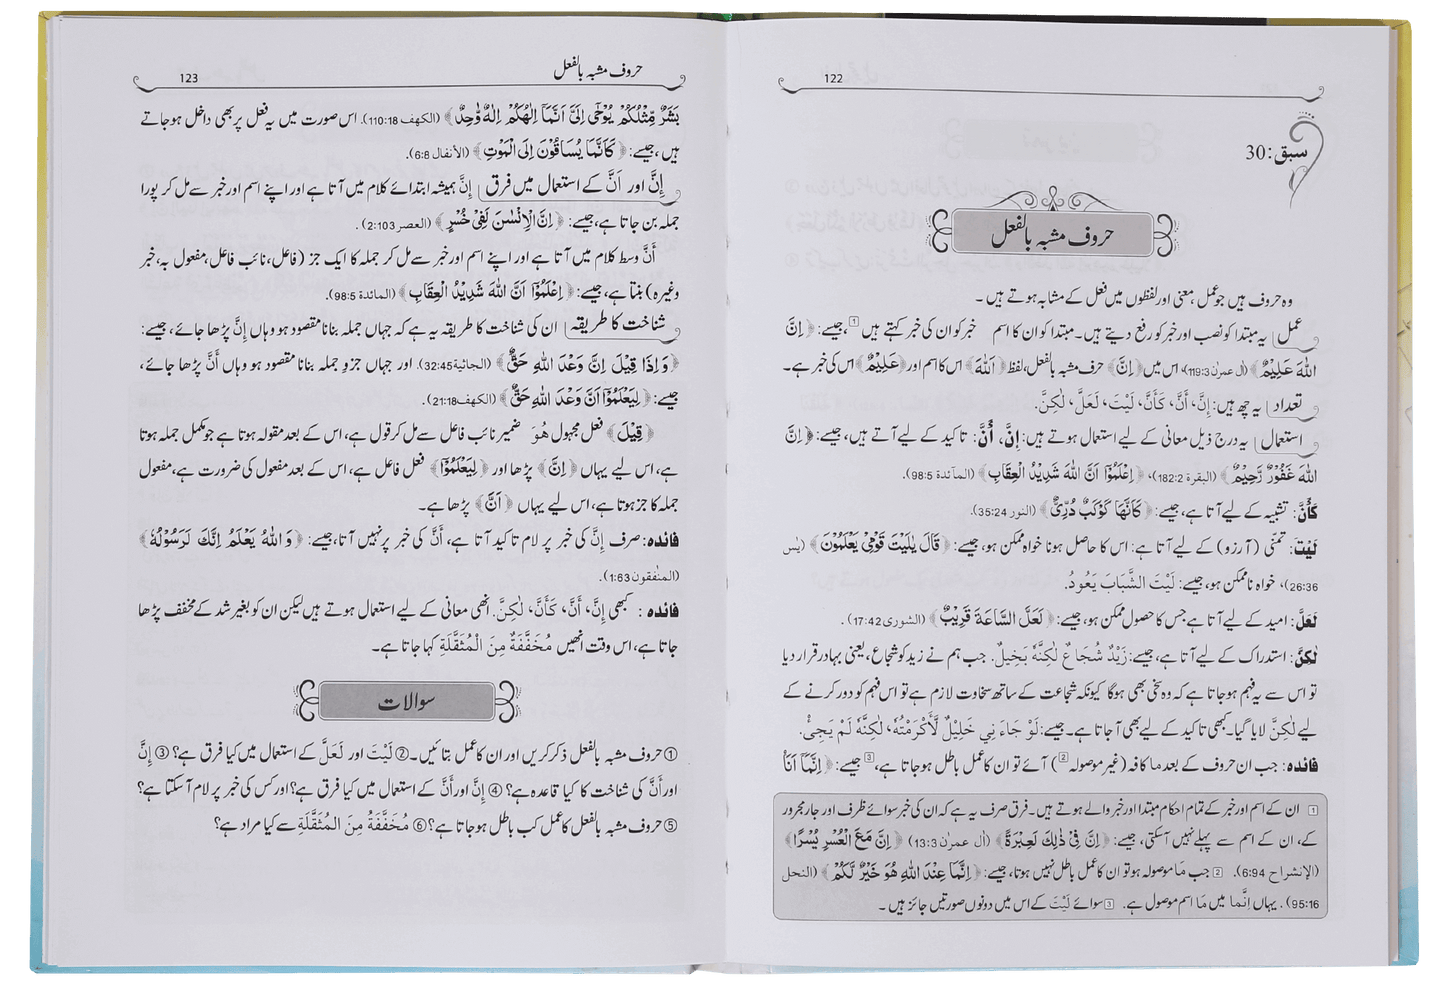 122
سبق:30
حروف مشبہ بالفعل
وہ حروف ہیں جو عمل، معنی اور لفظوں میں فعل کے مشابہ ہوتے ہیں۔
عمل یہ مبتدا کو نصب اور خبر کو رفع دیتے ہیں۔ مبتدا کو ان کا اسم خبر کو ان کی خبر کہتے ہیں 1، جیسے: ﴿اِنَّ
اللّٰهَ عَلِيْمٌ﴾ (اٰل عمرٰن 119:3)، اس میں ﴿اِنَّ﴾ حرف مشبہ بالفعل، لفظ ﴿اللّٰهَ﴾ اس کا اسم اور ﴿عَلِيْمٌ﴾ اس کی خبر ہے۔
تعداد یہ چھ ہیں: إِنَّ، أَنَّ، كَأَنَّ، لَيْتَ، لَعَلَّ، لٰكِنَّ.
استعمال یہ درج ذیل معانی کے لیے استعمال ہوتے ہیں: إِنَّ، أَنَّ: تاکید کے لیے آتے ہیں، جیسے: ﴿اِنَّ
اللّٰهَ غَفُوْرٌ رَّحِيْمٌ﴾ (البقرة 182:2)، ﴿اِعْلَمُوْٓا اَنَّ اللّٰهَ شَدِيْدُ الْعِقَابِ﴾ (المآئدة 98:5).
كَأَنَّ: تشبیہ کے لیے آتا ہے، جیسے: ﴿كَاَنَّهَا كَوْكَبٌ دُرِّيٌّ﴾ (النور 35:24).
لَيْتَ: تمنّی (آرزو) کے لیے آتا ہے: اس کا حاصل ہونا خواہ ممکن ہو، جیسے: ﴿قَالَ يٰلَيْتَ قَوْمِيْ يَعْلَمُوْنَ﴾ (یٰس
26:36)، خواہ ناممکن ہو، جیسے: لَيْتَ الشَّبَابَ يَعُودُ.
لَعَلَّ: امید کے لیے آتا ہے جس کا حصول ممکن ہو، جیسے: ﴿لَعَلَّ السَّاعَةَ قَرِيْبٌ﴾ (الشورٰی 17:42).
لٰكِنَّ: استدراک کے لیے آتا ہے، جیسے: زَيْدٌ شُجَاعٌ لٰكِنَّهٗ بَخِيلٌ. جب ہم نے زید کو شجاع، یعنی بہادر قرار دیا
تو اس سے یہ فہم ہو جاتا ہے کہ وہ سخی بھی ہوگا کیونکہ شجاعت کے ساتھ سخاوت لازم ہے تو اس فہم کو دور کرنے کے
لیے لٰكِنَّ لایا گیا۔ کبھی تاکید کے لیے بھی آ جاتا ہے۔ جیسے: لَوْ جَاءَ نِي خَلِيْلٌ لَّأَكْرَمْتُهٗ، لٰكِنَّهٗ لَمْ يَجِئْ.
فائدہ: جب ان حروف کے بعد ما کافہ (غیر موصولہ 2) آئے تو ان کا عمل باطل ہو جاتا ہے، 3 جیسے: ﴿اِنَّمَآ اَنَا
1 ان کے اسم اور خبر کے تمام احکام مبتدا اور خبر والے ہوتے ہیں۔ فرق صرف یہ ہے کہ ان کی خبر سوائے ظرف اور جار مجرور
کے، ان کے اسم سے پہلے نہیں آسکتی، جیسے: ﴿اِنَّ فِيْ ذٰلِكَ لَعِبْرَةً﴾ (اٰل عمرٰن 13:3) ﴿اِنَّ مَعَ الْعُسْرِ يُسْرًا﴾
(الإنشراح 6:94). 2 جب مَا موصولہ ہو تو ان کا عمل باطل نہیں ہوتا، جیسے: ﴿اِنَّمَا عِنْدَ اللّٰهِ هُوَ خَيْرٌ لَّكُمْ﴾ (النحل
95:16). یہاں إنَّما میں مَا اسم موصول ہے. 3 سوائے لَيْتَ کے اس میں دونوں صورتیں جائز ہیں۔
حروف مشبہ بالفعل 123
بَشَرٌ مِّثْلُكُمْ يُوْحٰٓى اِلَيَّ اَنَّمَآ اِلٰهُكُمْ اِلٰهٌ وَّاحِدٌ﴾ (الكهف 110:18). اس صورت میں یہ فعل پر بھی داخل ہو جاتے
ہیں، جیسے: ﴿كَاَنَّمَا يُسَاقُوْنَ اِلَى الْمَوْتِ﴾ (الأنفال 6:8).
إِنَّ اور أَنَّ کے استعمال میں فرق إِنَّ ہمیشہ ابتدائے کلام میں آتا ہے اور اپنے اسم اور خبر سے مل کر پورا
جملہ بن جاتا ہے، جیسے: ﴿اِنَّ الْاِنْسٰنَ لَفِيْ خُسْرٍ﴾ (العصر 2:103).
أَنَّ وسط کلام میں آتا ہے اور اپنے اسم اور خبر سے مل کر جملہ کا ایک جز (فاعل، نائب فاعل، مفعول بہ، خبر
وغیرہ) بنتا ہے، جیسے: ﴿اِعْلَمُوْٓا اَنَّ اللّٰهَ شَدِيْدُ الْعِقَابِ﴾ (المائدة 98:5).
شناخت کا طریقہ ان کی شناخت کا طریقہ یہ ہے کہ جہاں جملہ بنانا مقصود ہو وہاں إِنَّ پڑھا جائے، جیسے:
﴿وَاِذَا قِيْلَ اِنَّ وَعْدَ اللّٰهِ حَقٌّ﴾ (الجاثية 32:45). اور جہاں جزو جملہ بنانا مقصود ہو وہاں أَنَّ پڑھا جائے،
جیسے: ﴿لِيَعْلَمُوْٓا اَنَّ وَعْدَ اللّٰهِ حَقٌّ﴾ (الكهف 21:18).
﴿قِيْلَ﴾ فعل مجہول هُوَ ضمیر نائب فاعل سے مل کر قول ہے، اس کے بعد مقولہ ہوتا ہے جو مکمل جملہ ہوتا
ہے، اس لیے یہاں ﴿اِنَّ﴾ پڑھا اور ﴿لِيَعْلَمُوْٓا﴾ فعل فاعل ہے، اس کے بعد مفعول کی ضرورت ہے، مفعول
جملہ کا جز ہوتا ہے، اس لیے یہاں ﴿اَنَّ﴾ پڑھا ہے۔
فائدہ: صرف إِنَّ کی خبر پر لام تاکید آتا ہے، أَنَّ کی خبر پر نہیں آتا، جیسے: ﴿وَاللّٰهُ يَعْلَمُ اِنَّكَ لَرَسُوْلُهٗ﴾
(المنٰفقون 1:63).
فائدہ: کبھی إِنَّ، أَنَّ، كَأَنَّ، لٰكِنَّ. انھی معانی کے لیے استعمال ہوتے ہیں لیکن ان کو بغیر شد کے مخفف پڑھا
جاتا ہے، اس وقت انھیں مُخَفَّفَةٌ مِنَ الْمُثَقَّلَةِ کہا جاتا ہے۔
سوالات
① حروف مشبہ بالفعل ذکر کریں اور ان کا عمل بتائیں۔ ② لَيْتَ اور لَعَلَّ کے استعمال میں کیا فرق ہے؟ ③ إِنَّ
اور أَنَّ کی شناخت کا کیا قاعدہ ہے؟ ④ إِنَّ اور أَنَّ کے استعمال میں کیا فرق ہے؟ اور کس کی خبر پر لام آسکتا ہے؟
⑤ حروف مشبہ بالفعل کا عمل کب باطل ہو جاتا ہے؟ ⑥ مُخَفَّفَةٌ مِنَ الْمُثَقَّلَةِ سے کیا مراد ہے؟